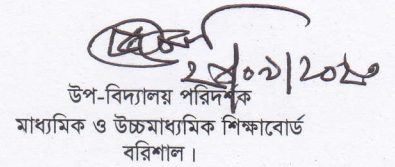 উপ-বিদ্যালয় পরিদর্শক
মাধ্যমিক ও উচ্চমাধ্যমিক শিক্ষাবোর্ড
বরিশাল।